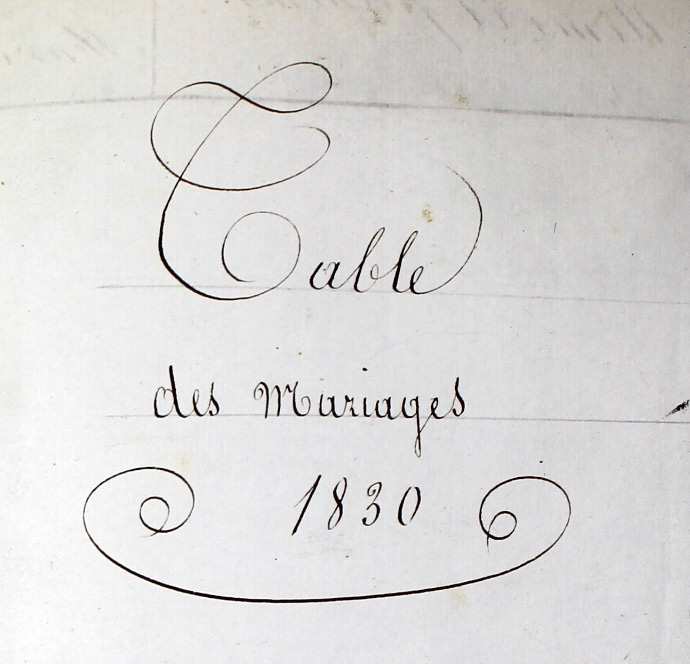 Table
des Mariages
1830